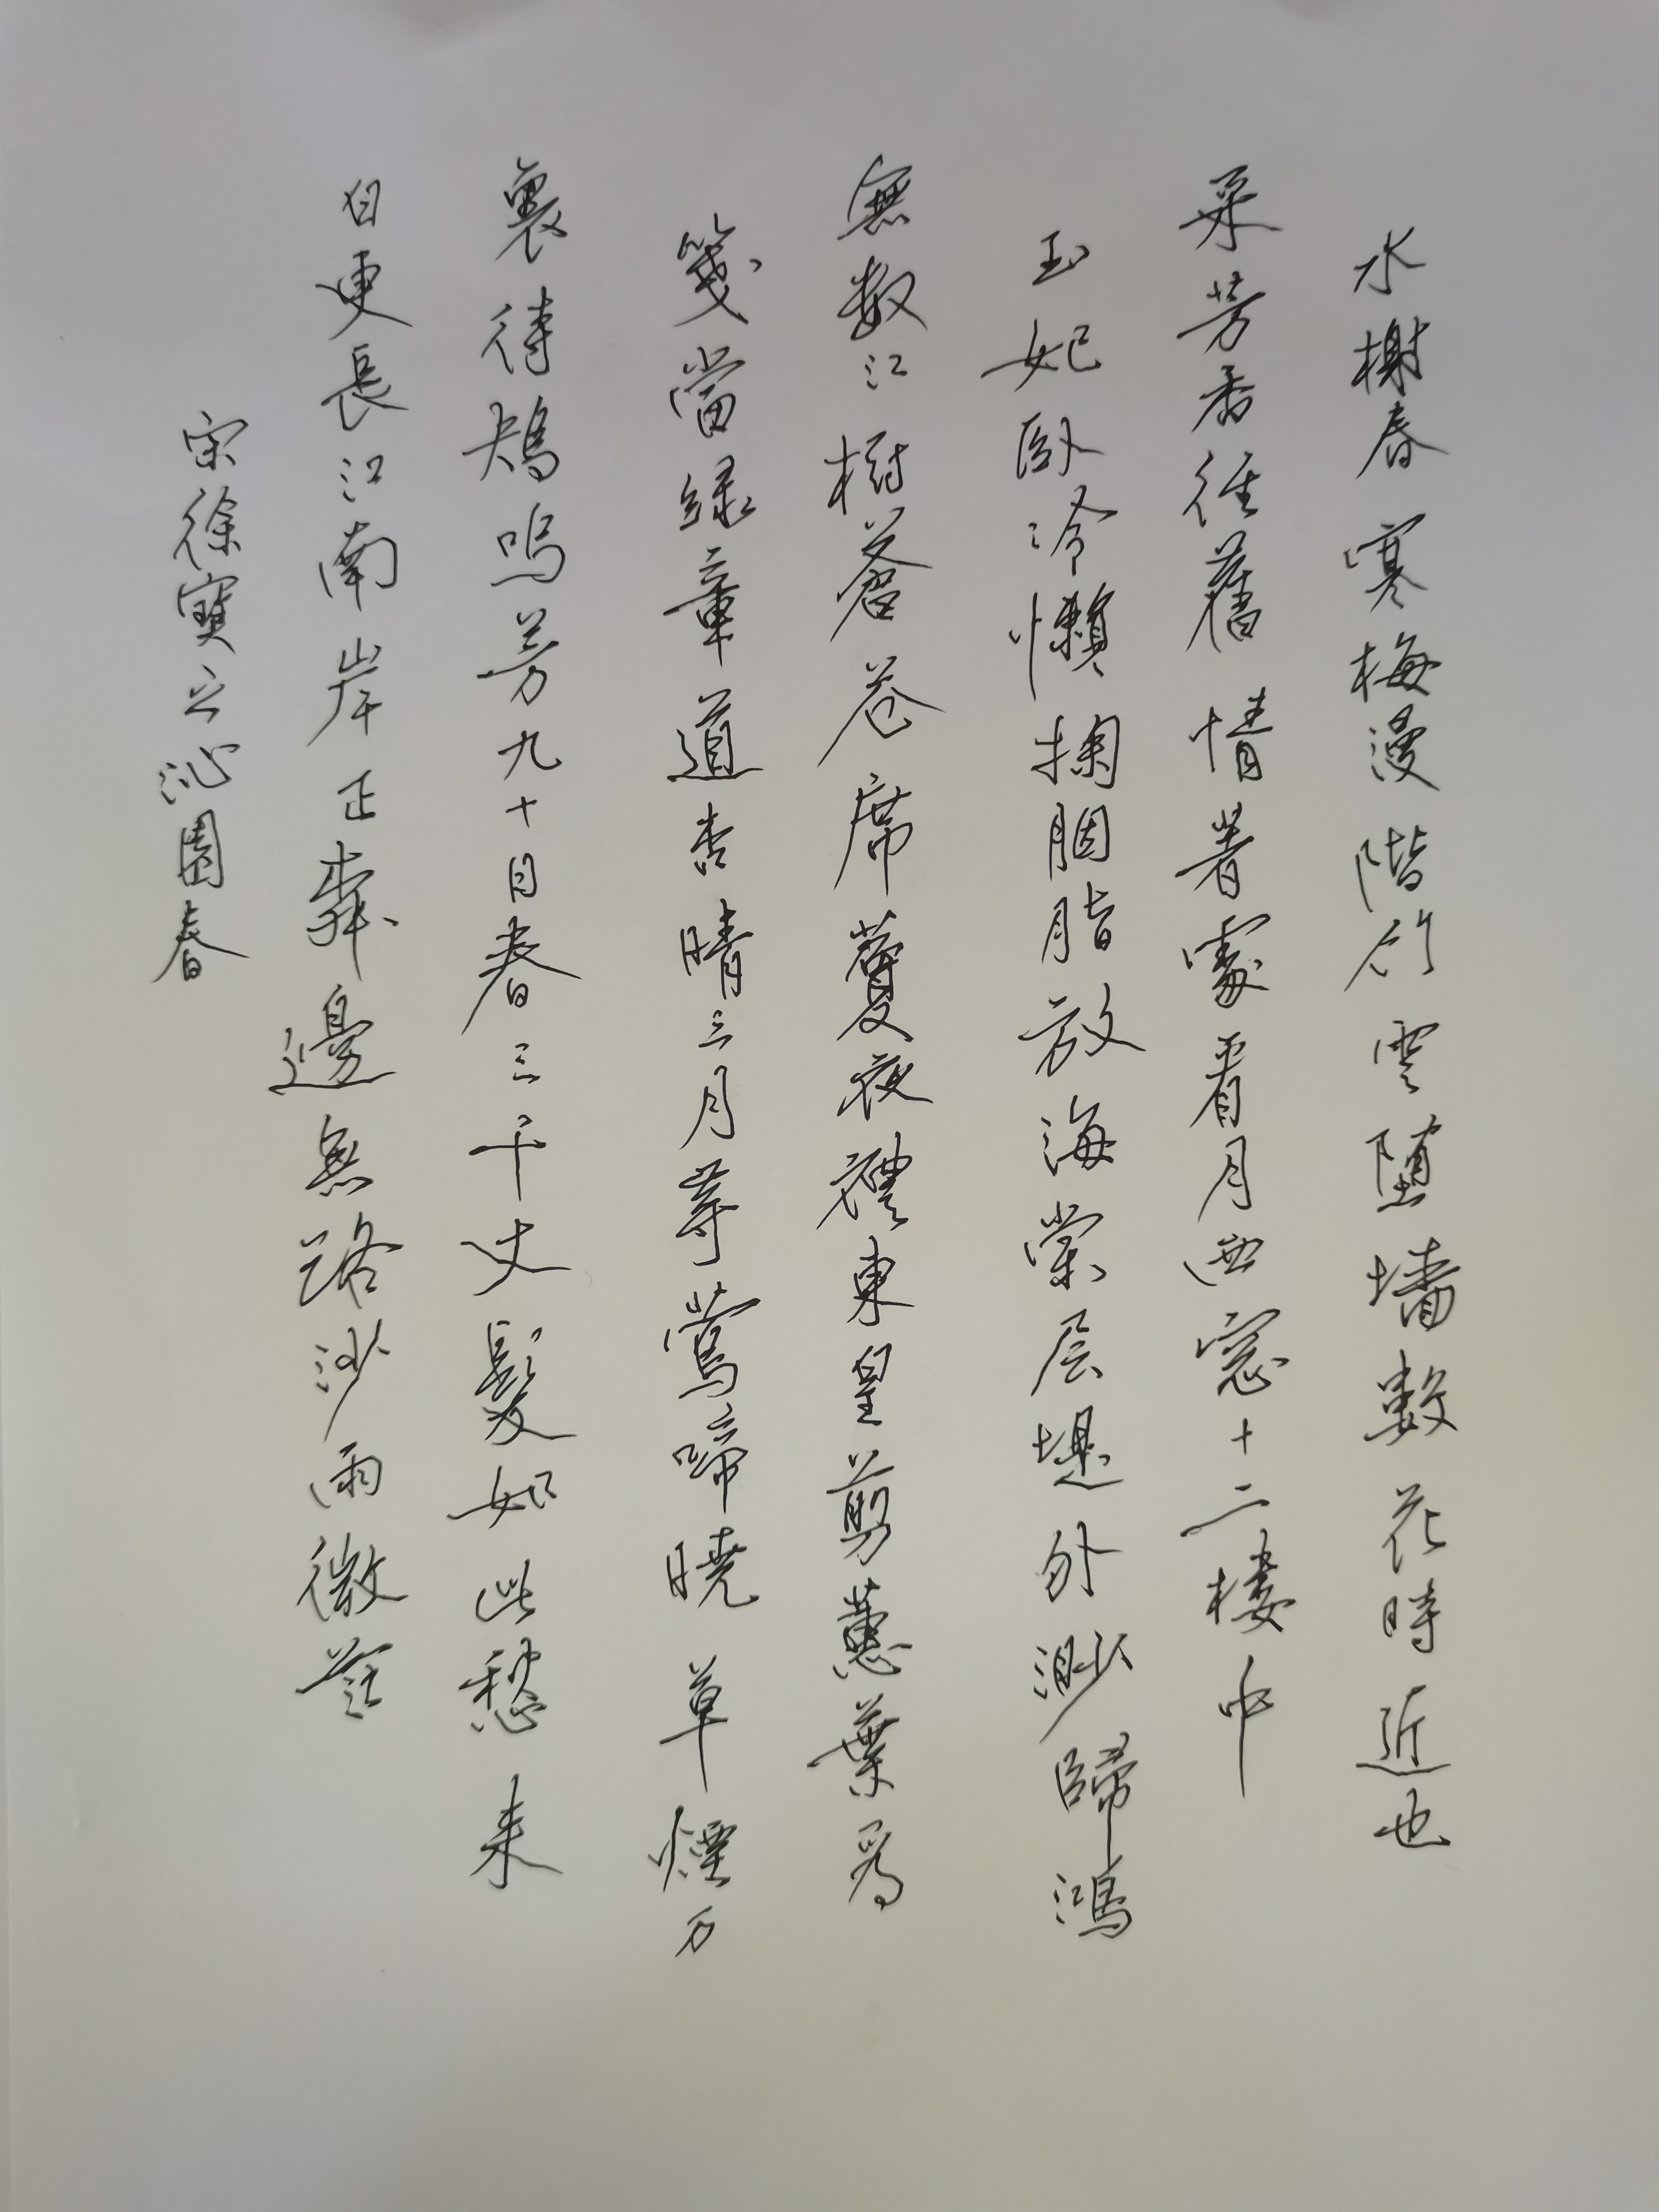 水榭春寒梅漫階行雲墮墻數花時近也
采芳香徑舊情著處看月西窓十二樓中
玉妃臥冷懶掬胭脂放海棠层堤外渺歸鴻
無数江樹蒼蒼席蘷夜禮東皇剪蕙葉爲
箋當緑章道杏晴三月等鶯啼曉草煙万
裏待鴆鳴芳九十日春三千丈髮如此愁來
白更長江南岸正舞邊無路沙雨微茫
宋徐寶之沁園春